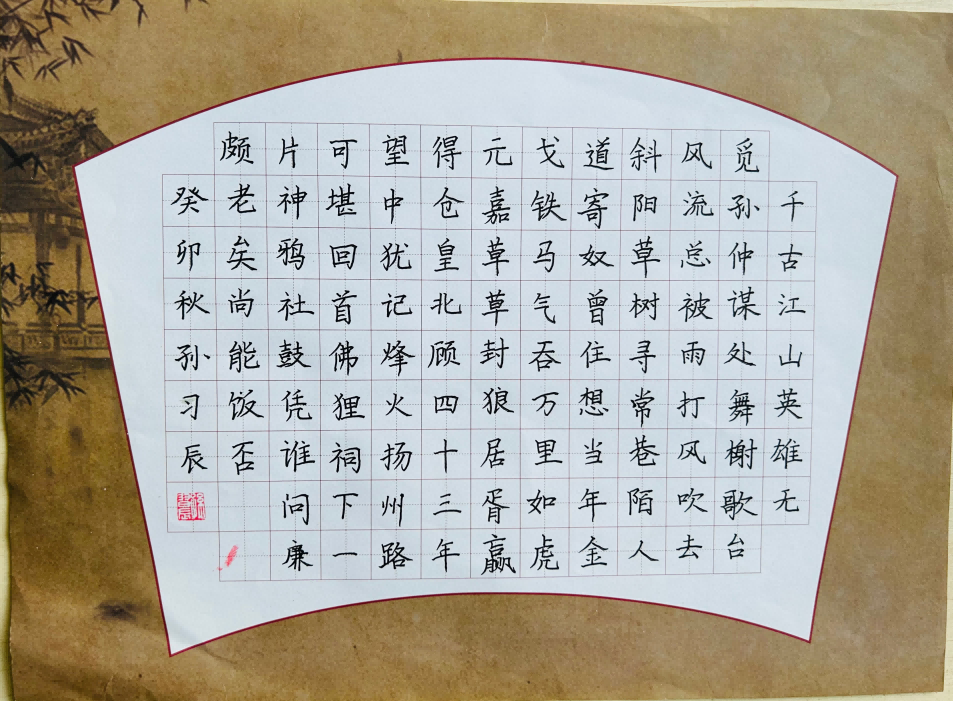 千古江山英雄无
觅孙仲谋处舞榭歌台
风流总被雨打风吹去
斜阳草树寻常巷陌人
道寄奴曾住想当年金
戈铁马气吞万里如虎
元嘉草草封狼居胥赢
得仓皇北顾四十三年
望中犹记烽火扬州路
可堪回首佛狸祠下一
片神鸦社鼓凭谁问廉
颇老矣尚能饭否
癸卯秋孙习辰